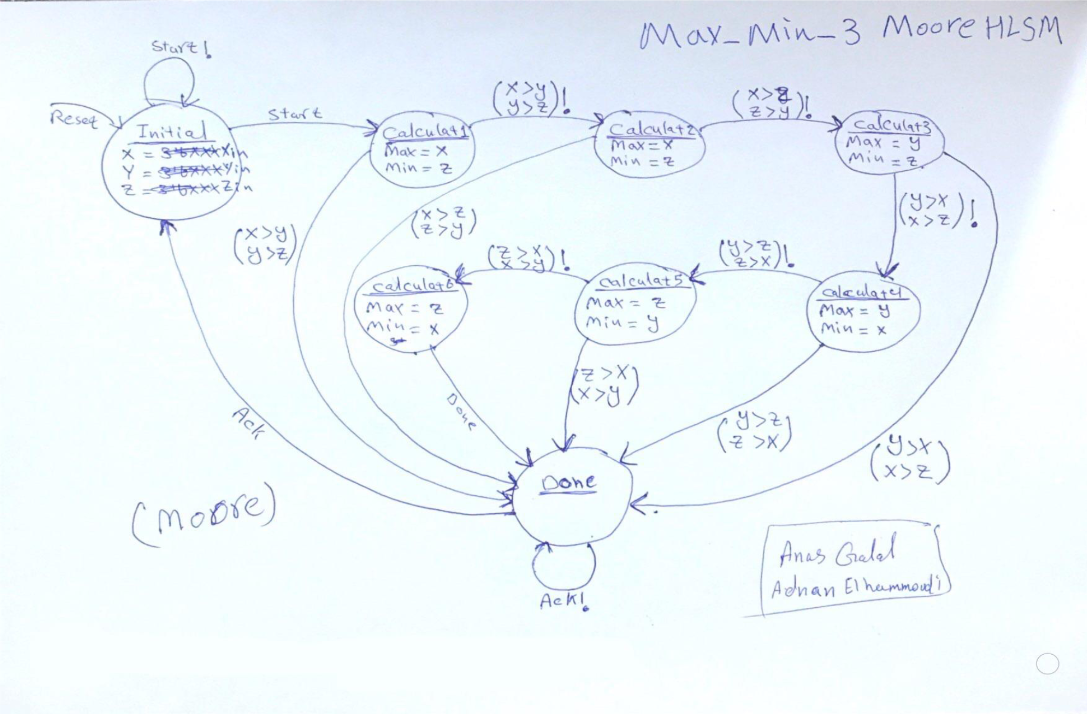 Max_Min_3 Moore HLSM
Start!
Reset
Initial
X = Xin
Y = Yin
Z = Zin
Start
Calculat1
Max = X
Min = Z
(x>y
y>z)!
Calculat2
Max = X
Min = Z
(x>z
z>y)!
Calculat3
Max = y
Min = z
(x>y
y>z)
(x>z
z>y)
(y>x
x>z)!
Calculat6
Max = z
Min = x
(z>x
x>y)!
Calculat5
Max = z
Min = y
(y>z
z>x)!
Calculat4
Max = y
Min = x
Ack
Done
(z>x
x>y)
(y>z
z>x)
(y>x
x>z)
Done
Ack!
(Moore)
Anas Galal
Adnan Elhammoudi